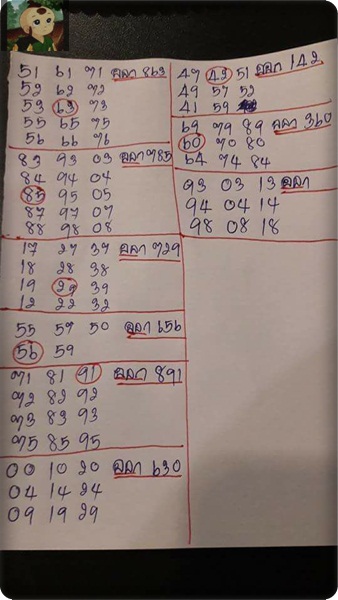 51 61 71 ออก 863
52 62 72
53 63 73
55 65 75
56 66 76
83 93 03 ออก 785
84 94 04
85 95 05
87 97 07
88 98 08
17 27 37 ออก 729
18 28 38
19 29 39
12 22 32
55 57 50 ออก 656
56 59
71 81 91 ออก 891
72 82 92
73 83 93
75 85 95
00 10 20 ออก 630
04 14 24
09 19 29
47 42 51 ออก 142
49 57 52
41 59
69 79 89 ออก 360
60 70 80
64 74 84
93 03 13 ออก
94 04 14
98 08 18